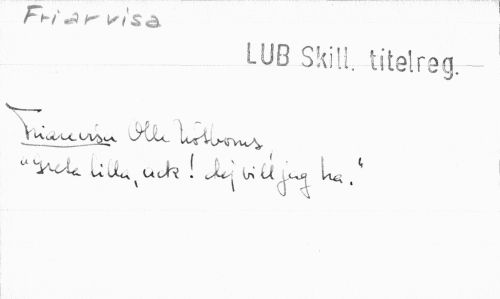 Friarvisa
LUB Skill. titelreg.
Friarevisa Olle Kölboms,
"Greta lilla, ack! dej vill jag ha."